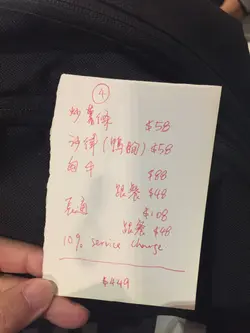 ④
薯條 $58
沙律(鴨胸) $58
$88
跟餐 $48
$108
跟餐 $48
10% service charge
$449